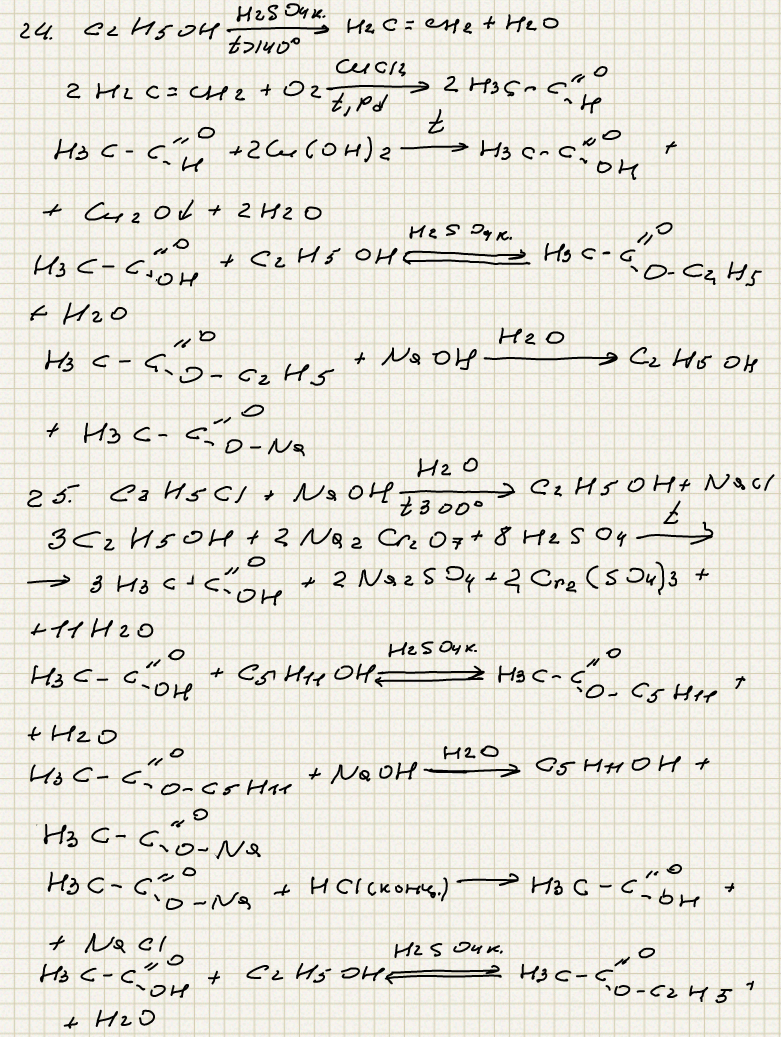 24. C2H5OH —H2SO4к. / t>140°→ H2C=CH2 + H2O
2 H2C=CH2 + O2 —CuCl2 / t, Pd→ 2 H3C-C(=O)-H
H3C-C(=O)-H + 2Cu(OH)2 —t→ H3C-C(=O)-OH +
+ Cu2O↓ + 2H2O
H3C-C(=O)-OH + C2H5OH ⇌ (H2SO4к.) H3C-C(=O)-O-C2H5
+ H2O
H3C-C(=O)-O-C2H5 + NaOH —H2O→ C2H5OH
+ H3C-C(=O)-O-Na
25. C2H5Cl + NaOH —H2O / t300°→ C2H5OH + NaCl
3C2H5OH + 2Na2Cr2O7 + 8H2SO4 —t→
→ 3H3C-C(=O)-OH + 2Na2SO4 + 2Cr2(SO4)3 +
+11H2O
H3C-C(=O)-OH + C5H11OH ⇌ (H2SO4к.) H3C-C(=O)-O-C5H11 +
+H2O
H3C-C(=O)-O-C5H11 + NaOH —H2O→ C5H11OH +
H3C-C(=O)-O-Na
H3C-C(=O)-O-Na + HCl(конц.) → H3C-C(=O)-OH +
+ NaCl
H3C-C(=O)-OH + C2H5OH ⇌ (H2SO4к.) H3C-C(=O)-O-C2H5 +
+ H2O